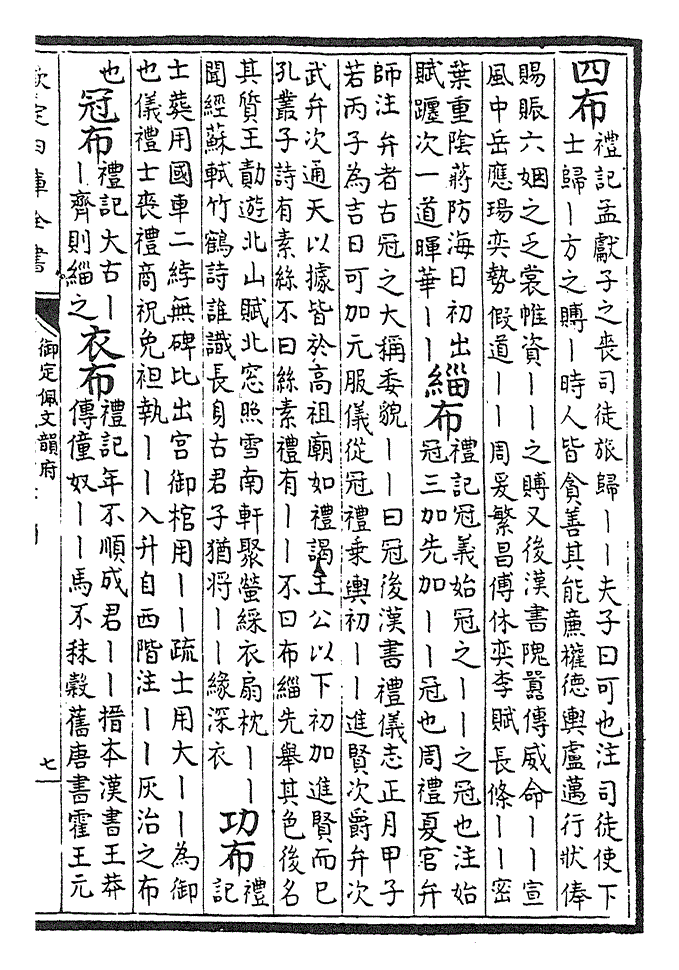 四布
禮記孟獻子之喪司徒旅歸丨丨夫子曰可也注司徒使下
士歸丨方之賻丨時人皆貪善其能廉權德輿盧邁行狀俸
賜賑六姻之乏裳帷資丨丨之賻又後漢書隗囂傳威命丨丨宣
風中岳應瑒奕勢假道丨丨周爰繁昌傅休奕李賦長條丨丨密
葉重陰蔣防海日初出
賦躔次一道暉華丨丨
緇布
禮記冠義始冠之丨丨之冠也注始
冠三加先加丨丨冠也周禮夏官弁
師注弁者古冠之大稱委貌丨丨曰冠後漢書禮儀志正月甲子
若丙子為吉日可加元服儀從冠禮乗輿初丨丨進賢次爵弁次
武弁次通天以據皆於高祖廟如禮謁王公以下初加進賢而已
孔叢子詩有素絲不曰絲素禮有丨丨不曰布緇先舉其色後名
其質王勣遊北山賦北窓照雪南軒聚螢綵衣扇枕丨丨
聞經蘇軾竹鶴詩誰識長身古君子猶將丨丨緣深衣
功布
禮
記
士葬用國車二綍無碑比出宫御棺用丨丨疏士用大丨丨為御
也儀禮士喪禮商祝免袒執丨丨入升自西階注丨丨灰治之布
也
冠布
禮記大古丨
丨齊則緇之
衣布
禮記年不順成君丨丨搢本漢書王莽
傳僮奴丨丨馬不秣榖舊唐書霍王元
欽定四庫全書
御定佩文韻府
七